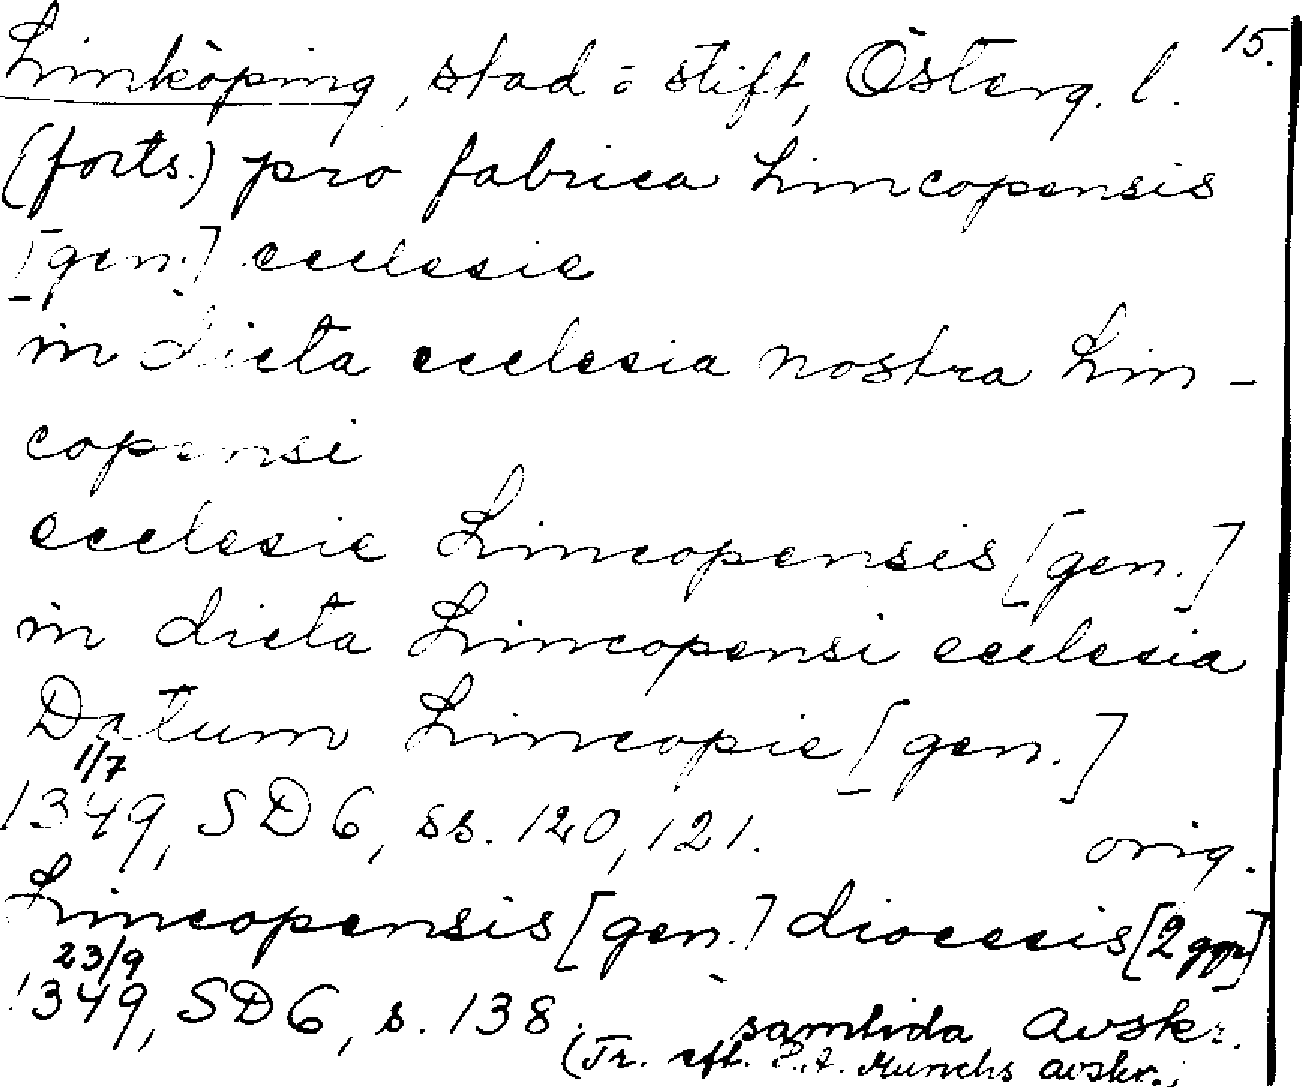 15.
Linköping, stad o stift, Österg. l.
(forts.) pro fabrica Lincopensis
[gen.] ecclesie
in dicta ecclesia nostra Lin-
copensi
ecclesie Lincopensis [gen.]
in dicta Lincopensi ecclesia
Datum Lincopie [gen.]
1/7
1349, SD 6, ss. 120, 121. orig.
Lincopensis [gen.] diocesis [2 ggr]
23/9
1349, SD 6, s. 138. samtida avskr.
(Tr. eft. P.A. Munchs avskr.;